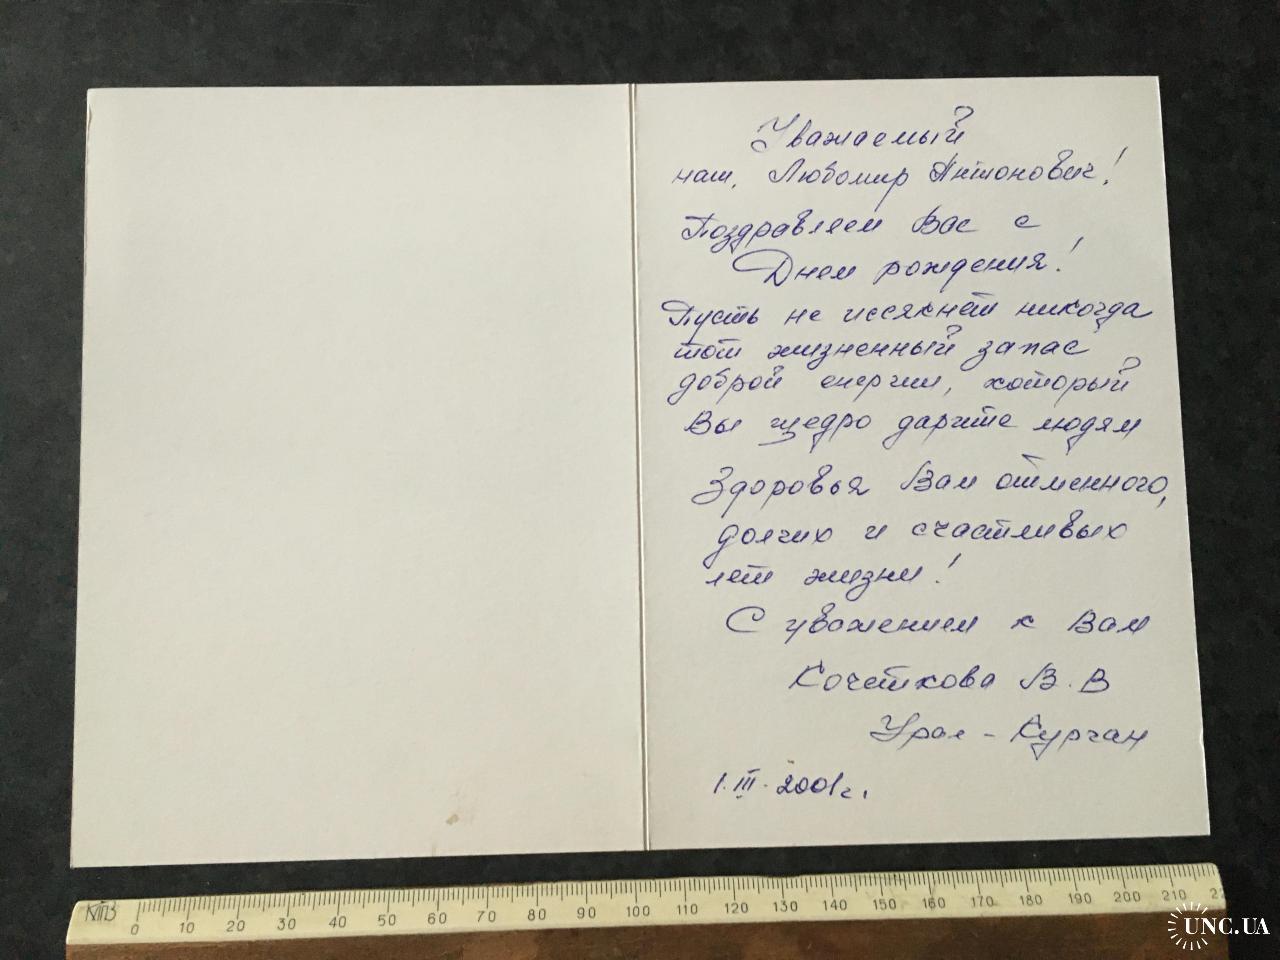 Уважаемый
наш, Любомир Антонович!
Поздравляем Вас с
Днем рождения!
Пусть не иссякнет никогда
тот жизненный запас
доброй енергии, который
Вы щедро дарите людям
Здоровья Вам отменного,
долгих и счастливых
лет жизни!
С уважением к Вам
Кочеткова В.В
Урал - Курган
1.III.2001г.
КТПЗ
0 10 20 30 40 50 60 70 80 90 100 110 120 130 140 150 160 170 180 190 200 210 22
UNC.UA